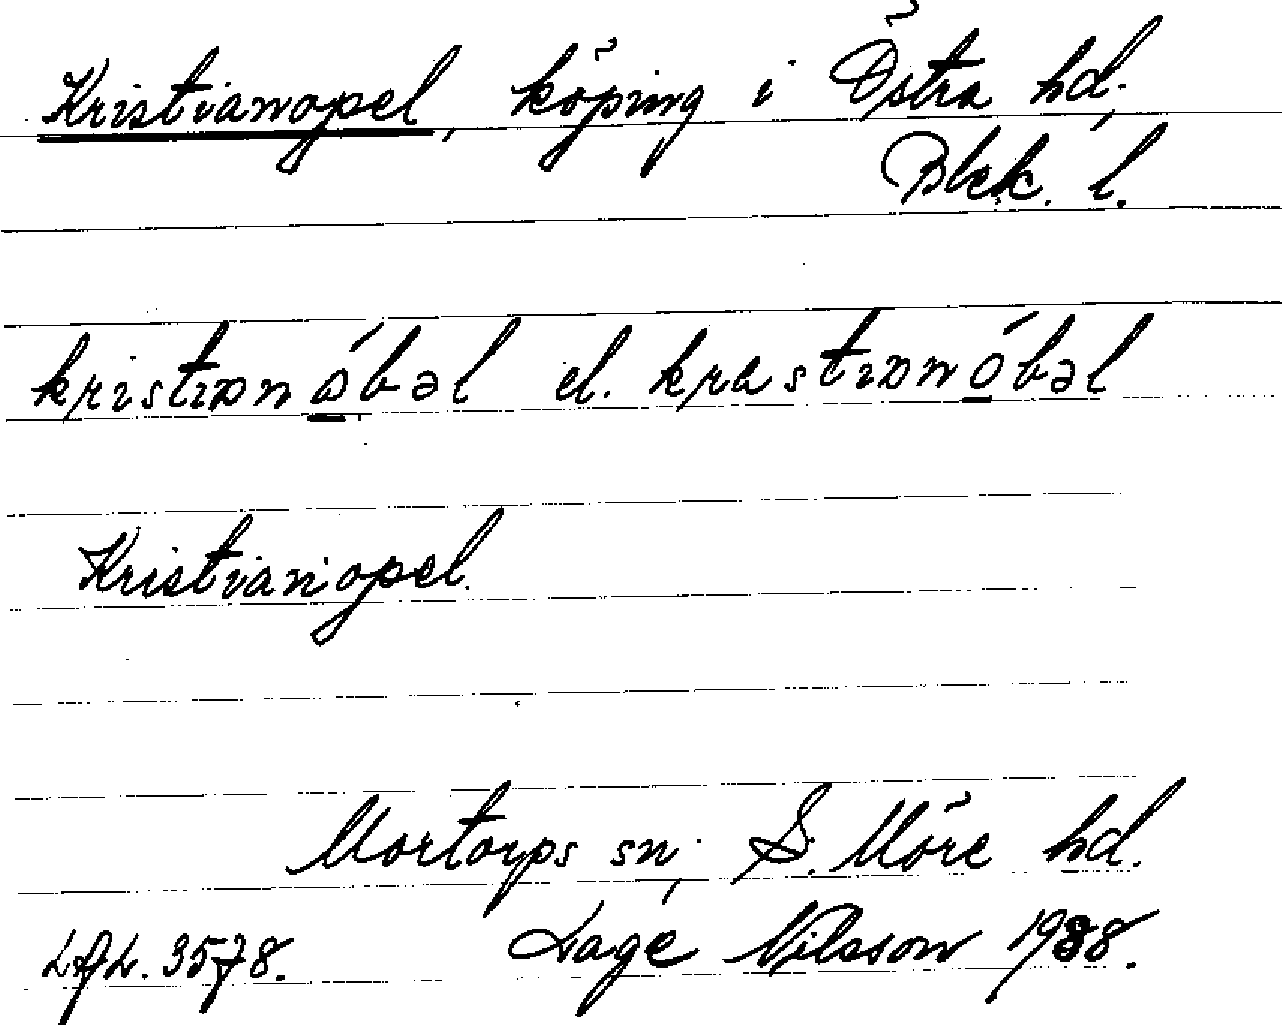 Kristianopel, köping i Östra hd,
Blek. l.
kristianóbəl el. krastianóbəl
Kristianopel.
Mortorps sn, S. Möre hd.
3578. Dage Nilsson 1938.